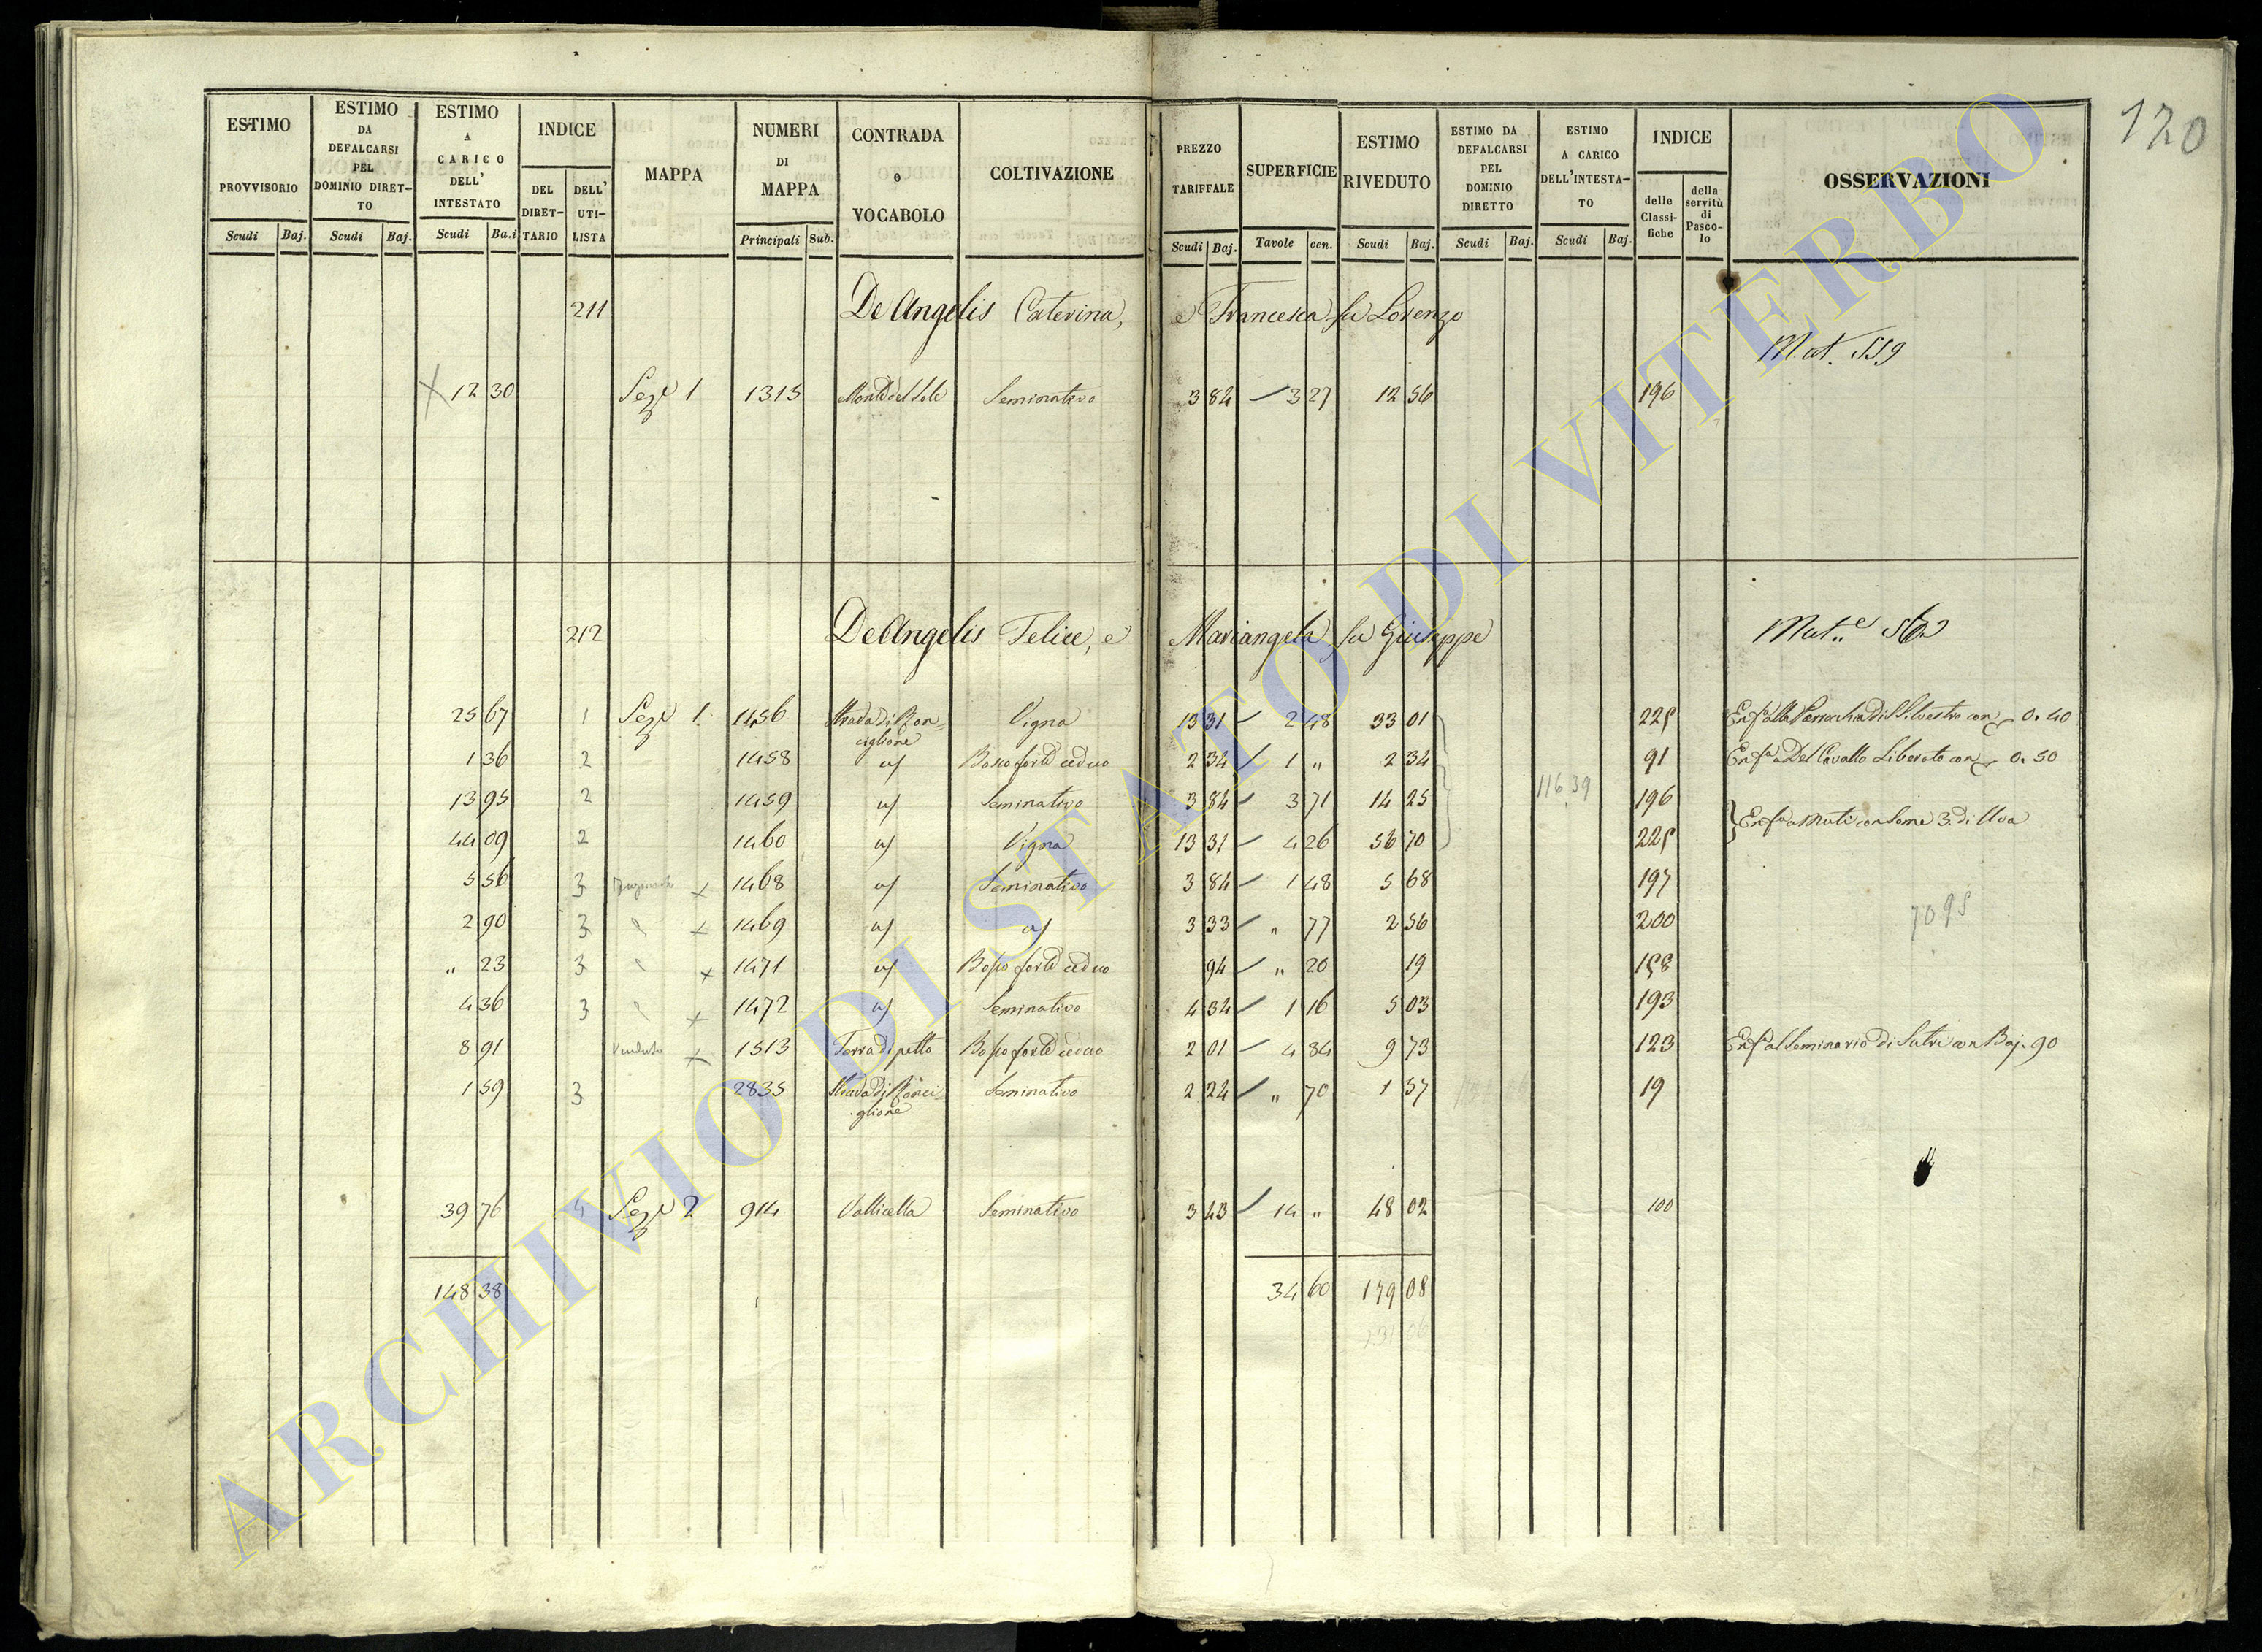 120
ESTIMO PROVVISORIO Scudi Baj.
ESTIMO DA DEFALCARSI PEL DOMINIO DIRET-TO Scudi Baj.
ESTIMO A CARICO DELL' INTESTATO Scudi Ba.i
INDICE DEL DIRET-TARIO DELL' UTI-LISTA
MAPPA
NUMERI DI MAPPA Principali Sub.
CONTRADA o VOCABOLO
COLTIVAZIONE
PREZZO TARIFFALE Scudi Baj.
SUPERFICIE Tavole cen.
ESTIMO RIVEDUTO Scudi Baj.
ESTIMO DA DEFALCARSI PEL DOMINIO DIRETTO Scudi Baj.
ESTIMO A CARICO DELL'INTESTA-TO Scudi Baj.
INDICE delle Classi-fiche della servitù di Pasco-lo
OSSERVAZIONI
211 De Angelis Caterina, e Francesca fu Lorenzo
Mat. 559
12 30 Sez.e 1 1315 Monte del Sole Seminativo 3 84 3 27 12 56 196
212 De Angelis Felice, e Mariangela fu Giuseppe Mat.e 562
25 67 1 Sez.e 1. 1456 Strada di Ronciglione Vigna 13 31 2 48 33 01 225 Enf.a alla Parrochia di S. Silvestro con 0. 40
1 36 2 1458 a/ Bosco forte ceduo 2 34 1 " 2 34 91 Enf.a a Del Cavallo Liberato con 0. 50
13 95 2 1459 a/ Seminativo 3 84 3 71 14 25 116.39 196
44 09 2 1460 a/ Vigna 13 31 4 26 56 70 225 Enf.a a Muti con Some 3. di Uva
5 56 3 1468 a/ Seminativo 3 84 1 48 5 68 197
2 90 3 1469 a/ a/ 3 33 " 77 2 56 200 70 95
" 23 3 1471 a/ Bosco forte ceduo 94 " 20 19 158
4 36 3 1472 a/ Seminativo 4 34 1 16 5 03 193
8 91 Venduto 1513 Terra di petto Bosco forte ceduo 2 01 4 84 9 73 123 Enf.a al Seminario di Sutri con Baj. 90
1 59 3 2835 Strada di Ronciglione Seminativo 2 24 " 70 1 57 19
39 76 4 Sez.e 2 914 Vallicella Seminativo 3 43 14 " 48 02 100
148 38 34 60 179 08
ARCHIVIO DI STATO DI VITERBO